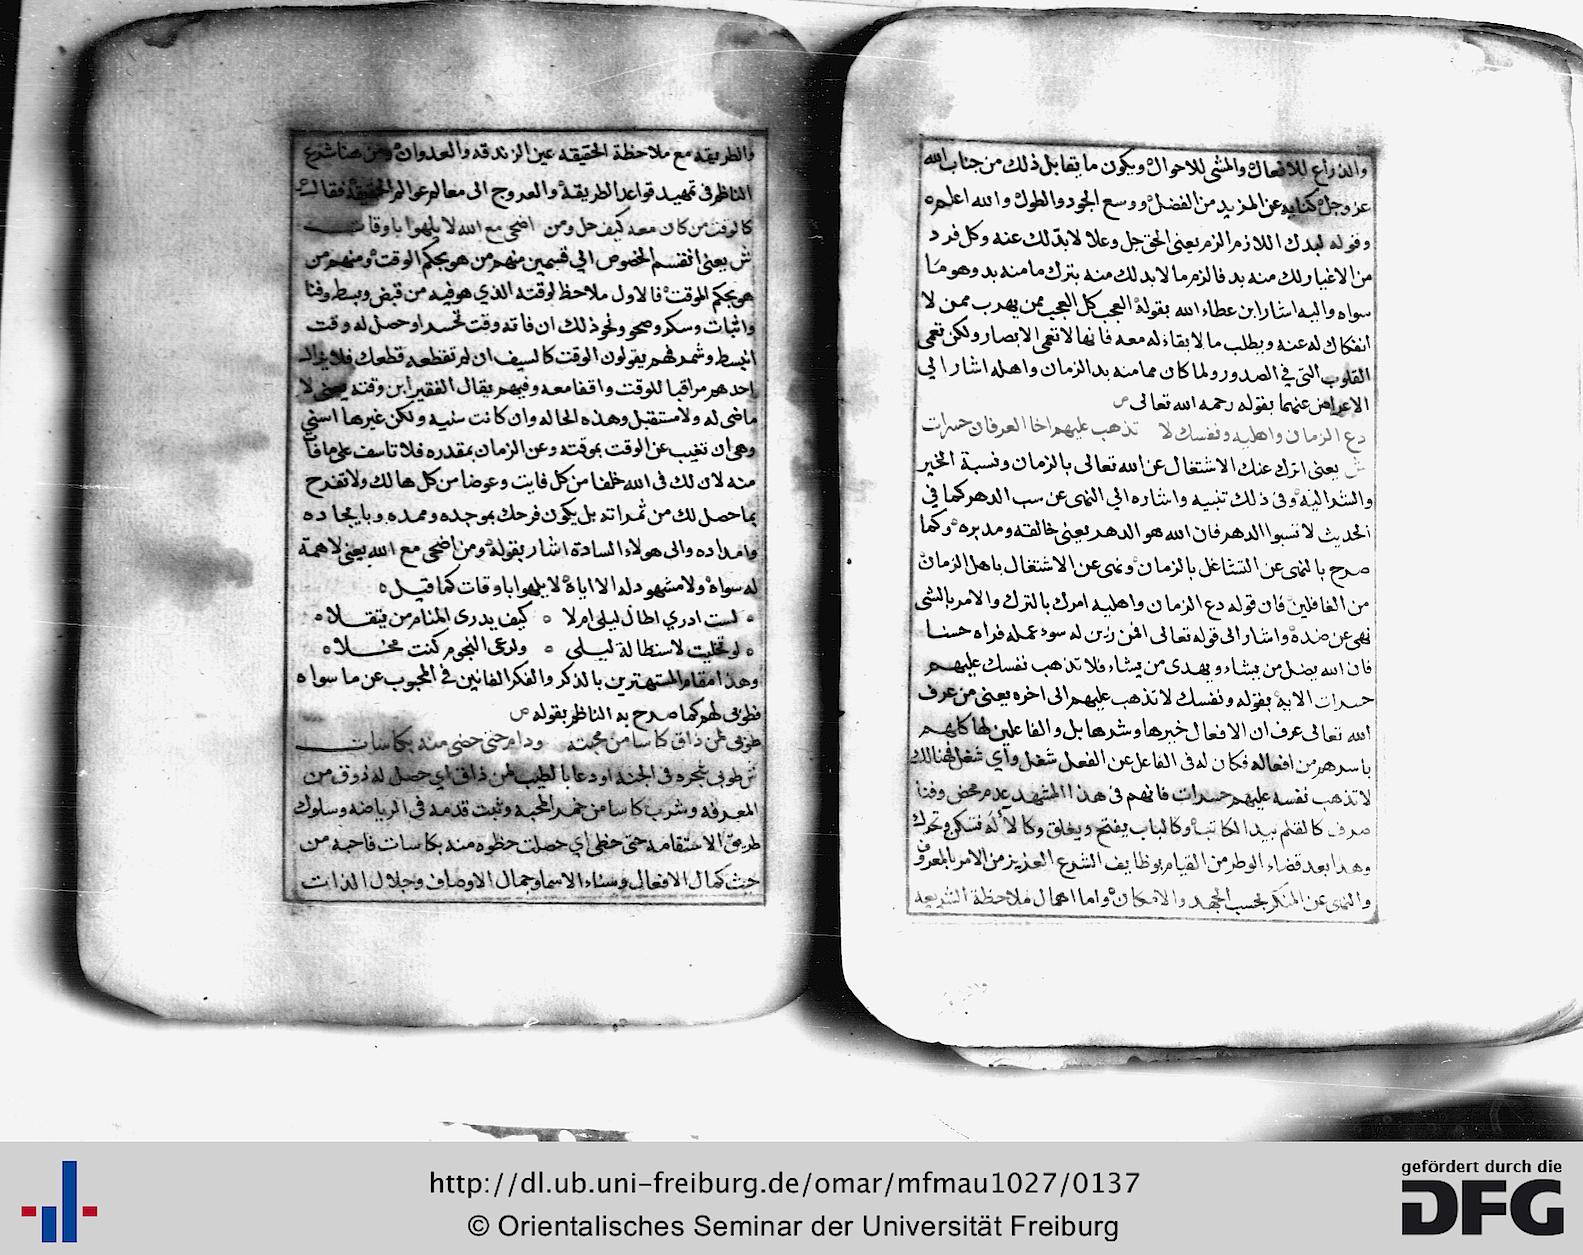 والذراع للافعال والمشي للاحوال ويكون ما يقابل ذلك من جناب الله
عز وجل كنايه عن المزيد من الفضل ووسع الجود والطول والله اعلم ه
وقوله لبدك اللازم الزم يعني الحق جل وعلا لا بد لك عنه وكل فرد
من الاغيار لك منه بد فالزم ما لا بد لك منه بترك ما منه بد وهو ما
سواه واليه اشار ابن عطاء الله بقوله العجب كل العجب ممن يهرب ممن لا
انفكاك له عنه ويطلب ما لا بقاء له معه فانها لا تعمى الابصار ولكن تعمى
القلوب التي في الصدور ولما كان مما منه بد الزمان واهله اشار الي
الاعراض عنهما بقوله رحمه الله تعالى ص
دع الزمان واهليه ونفسك لا تذهب عليهم اخا العرفان حسرات
ش يعني اترك عنك الاشتغال عن الله تعالى بالزمان ونسبة الخير
والشر اليه وفي ذلك تنبيه واشاره الي النهى عن سب الدهر كما في
الحديث لا تسبوا الدهر فان الله هو الدهر يعني خالقه ومدبره وكما
صرح بالنهى عن التشاغل بالزمان ونهى عن الاشتغال باهل الزمان
من الغافلين فان قوله دع الزمان واهليه امرك بالترك والامر بالشى
نهى عن ضده واشار الى قوله تعالى افمن زين له سوء عمله فراه حسنا
فان الله يضل من يشاء ويهدى من يشاء فلا تذهب نفسك عليهم
حسرات الايه بقوله ونفسك لا تذهب عليهم الى اخره يعنى من عرف
الله تعالى عرف ان الافعال خيرها وشرها بل والفاعلين لها كلهم
باسرهم من افعاله فكان له فى الفاعل عن الفعل شغل واي شغل فهنالك
لا تذهب نفسه عليهم حسرات فانهم فى هذا المشهد عدم محض وفنا
صرف كالقلم بيد الكاتب وكالباب يفتح ويغلق وكالآله تسكن وتحرك
وهذا بعد قضاء الوطر من القيام بوظايف الشرع العزيز من الامر بالمعروف
والنهى عن المنكر بحسب الجهد والامكان واما اهمال ملاحظة الشريعه
والطريقه مع ملاحظة الحقيقه عين الزندقه والعدوان ومن هنا شرع
الناظم فى تمهيد قواعد الطريقه والعروج الى معالم عوالم الحقيقه فقال
كالوقت من كان معه كيف حل ومن اضحى مع الله لا يلهوا باوقات
ش يعنى انقسم الخصوص الي قسمين منهم من هو بحكم الوقت ومنهم من
هو بحكم الموقت فالاول ملاحظ لوقته الذي هو فيه من قبض وبسط وفنا
واثبات وسكر وصحو ونحو ذلك ان فاته وقت تحسر او حصل له وقت
انبسط وشمر فهم يقولون الوقت كالسيف ان لم تقطعه قطعك فلا يزال
احدهم مراقبا للوقت واقفا معه وفيهم يقال الفقير ابن وقته يعنى لا
ماضى له ولا مستقبل وهذه الحاله وان كانت سنيه ولكن غيرها اسنى
وهى ان تغيب عن الوقت بموقته وعن الزمان بمقدره فلا تاسف على ما فات
منه لان لك فى الله خلفا من كل فايت وعوضا من كل هالك ولا تفرح
بما حصل لك من ثمراته بل يكون فرحك بموجده وممده وبايجاده
وامداده والى هولاء السادة اشار بقوله ومن اضحى مع الله يعنى لا همة
له سواه ولا مشهود له الا اياه لا يلهوا باوقات كما قيل ه
لست ادري اطال ليلى ام لا ه كيف يدرى المنام من يتقلا ه
لو تخليت لاستطالة ليلى ه ولرعى النجوم كنت مخلا ه
وهذا مقام المستهترين بالذكر والفكر الفانين في المحبوب عن ما سواه
فطوبى لهم كما صرح به الناظم بقوله ص
طوبى لمن ذاق كاسا من محبته ودام حتى حضى منه بكاسات
ش طوبى شجره فى الجنه او دعا بالطيب لمن ذاق اي حصل له ذوق من
المعرفه وشرب كاسا من خمر المحبه وثبت قدمه فى الرياضه وسلوك
طريق الاستقامه حتى حظى اي حصلت حظوه منه بكاسات فاحبه من
حيث كمال الافعال وسناء الاسما وجمال الاوصاف وجلال الذات
http://dl.ub.uni-freiburg.de/omar/mfmau1027/0137
© Orientalisches Seminar der Universität Freiburg
gefördert durch die
DFG